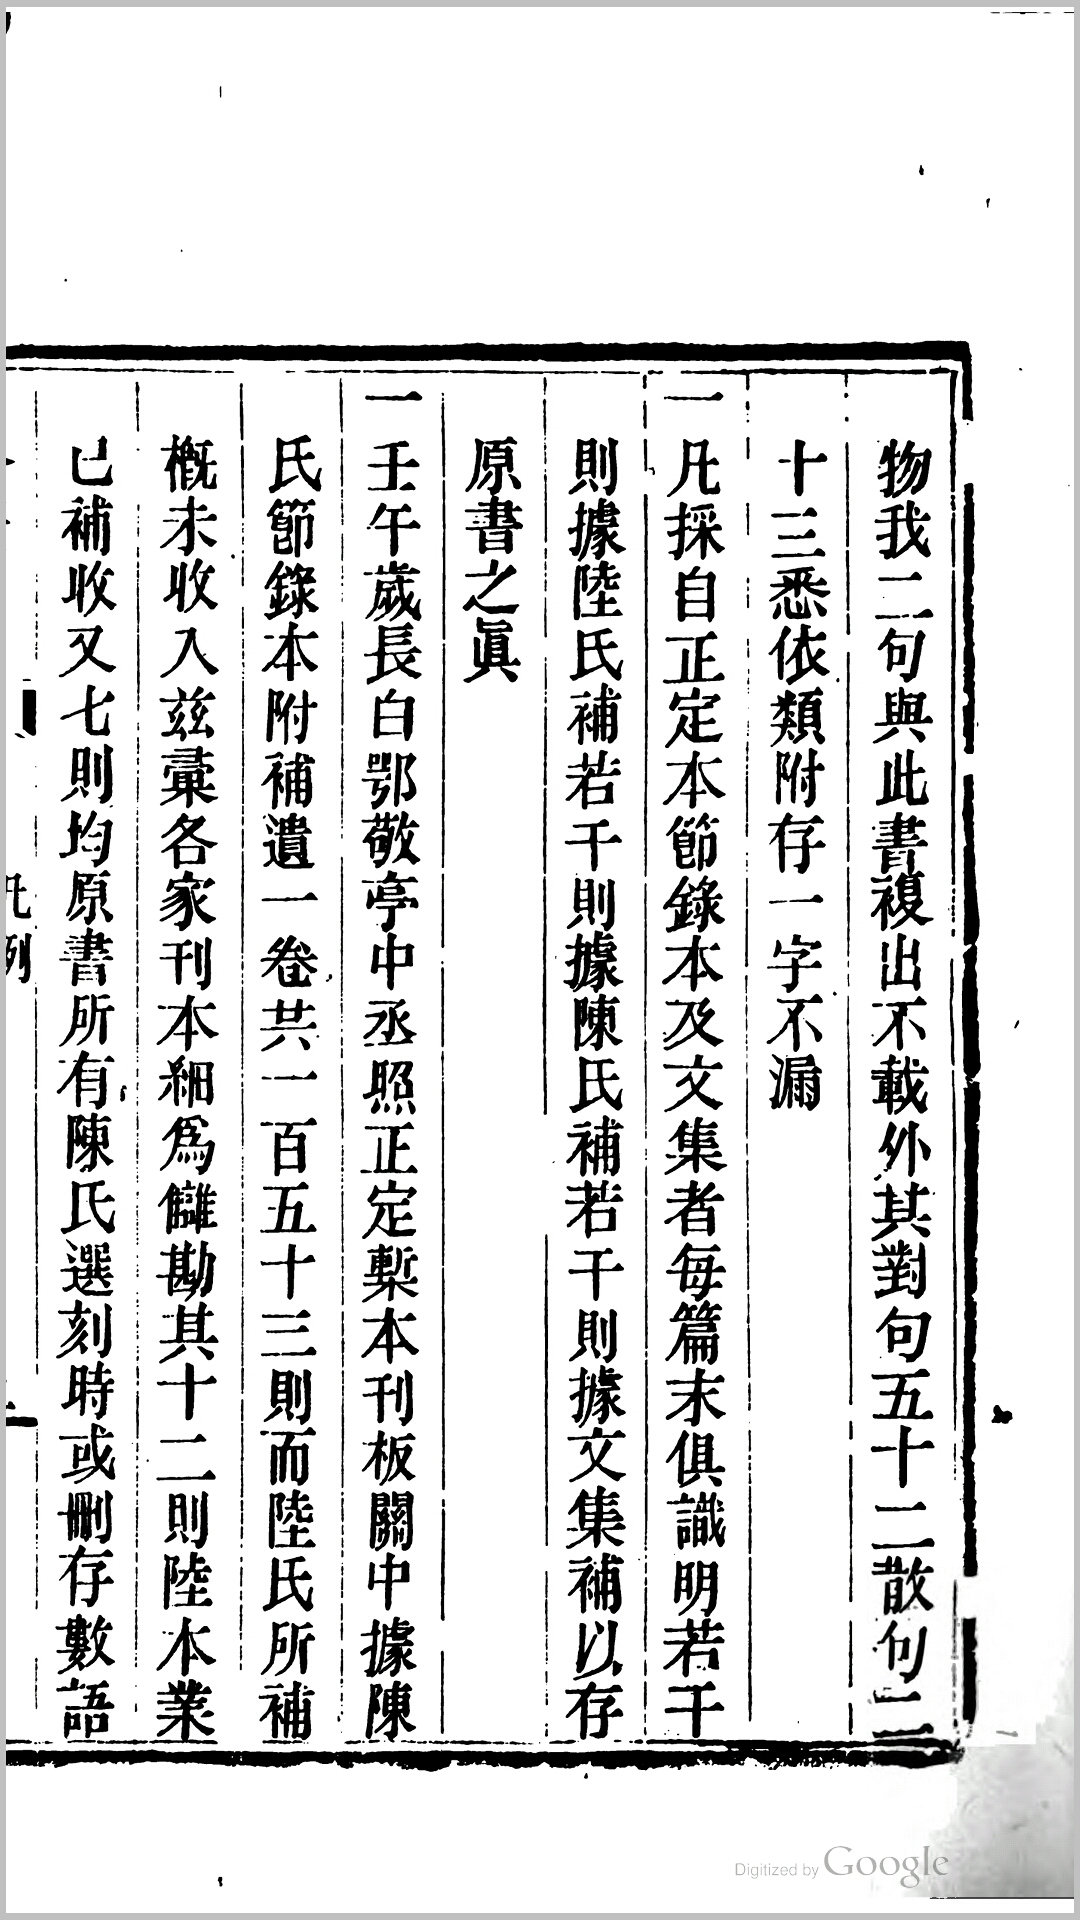 物我二句與此書複出不載外其對句五十二散句二
十三悉依類附存一字不漏
一凡採自正定本節錄本及文集者每篇末俱識明若干
則據陸氏補若干則據陳氏補若干則據文集補以存
原書之眞
一壬午歲長白鄂敬亭中丞照正定槧本刊板關中據陳
氏節錄本附補遺一卷共一百五十三則而陸氏所補
槪未收入茲彙各家刊本細爲讎勘其十二則陸本業
已補收又七則均原書所有陳氏選刻時或刪存數語
凡例
Digitized by Google